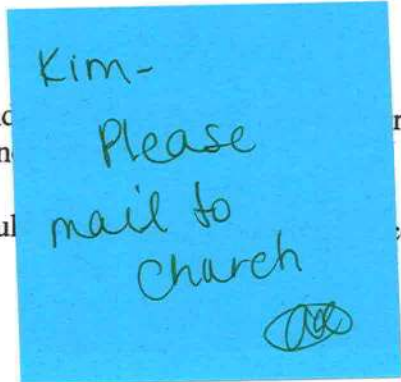 Kim-
Please
mail to
church